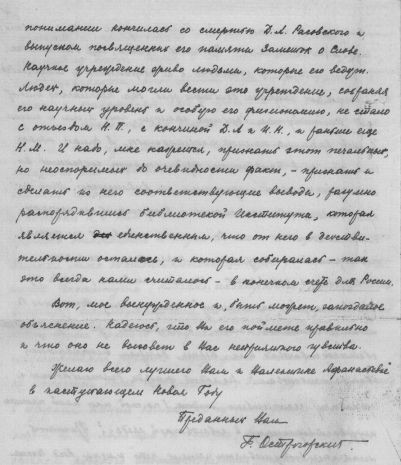 понимании кончилась со смертью Д.А. Расовского и
выпуском посвященных его памяти Заметок о Слове.
Научное учреждение живо людьми, которые его ведут.
Людей, которые могли вести это учреждение, сохраняя
его научный уровень и особую его физиономию, не стало
с отъездом Н.П., с кончиной Д.А и И.Н., и раньше еще
Н.М. И надо, мне кажется, признать этот печальный,
но неоспоримый до очевидности факт, - признать и
сделать из него соответствующие выводы, разумно
распорядившись библиотекой Института, которая
является единственным, что от него в действи-
тельности осталось, и которая собиралась - так
это всегда нами считалось - в конечном счете для России.
Вот, мое вынужденное и, быть может, запоздалое
объяснение. Надеюсь, что Вы его поймете правильно
и что оно не вызовет в Вас неприязного чувства.
Желаю всего лучшего Вам и Валентине Афанасьевне
в наступающем Новом Году
Преданный Вам
Г. Острогорский